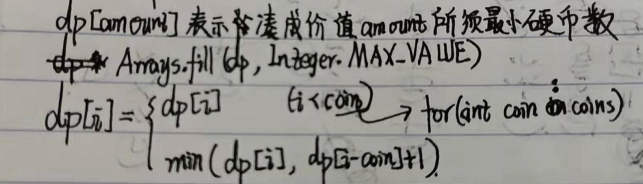 dp[amount] 表示凑成价值 amount 所须最小硬币数
Arrays.fill(dp, Integer.MAX_VALUE)
dp[i] = { dp[i] (i < coin) → for(int coin : coins)
min(dp[i], dp[i-coin]+1)